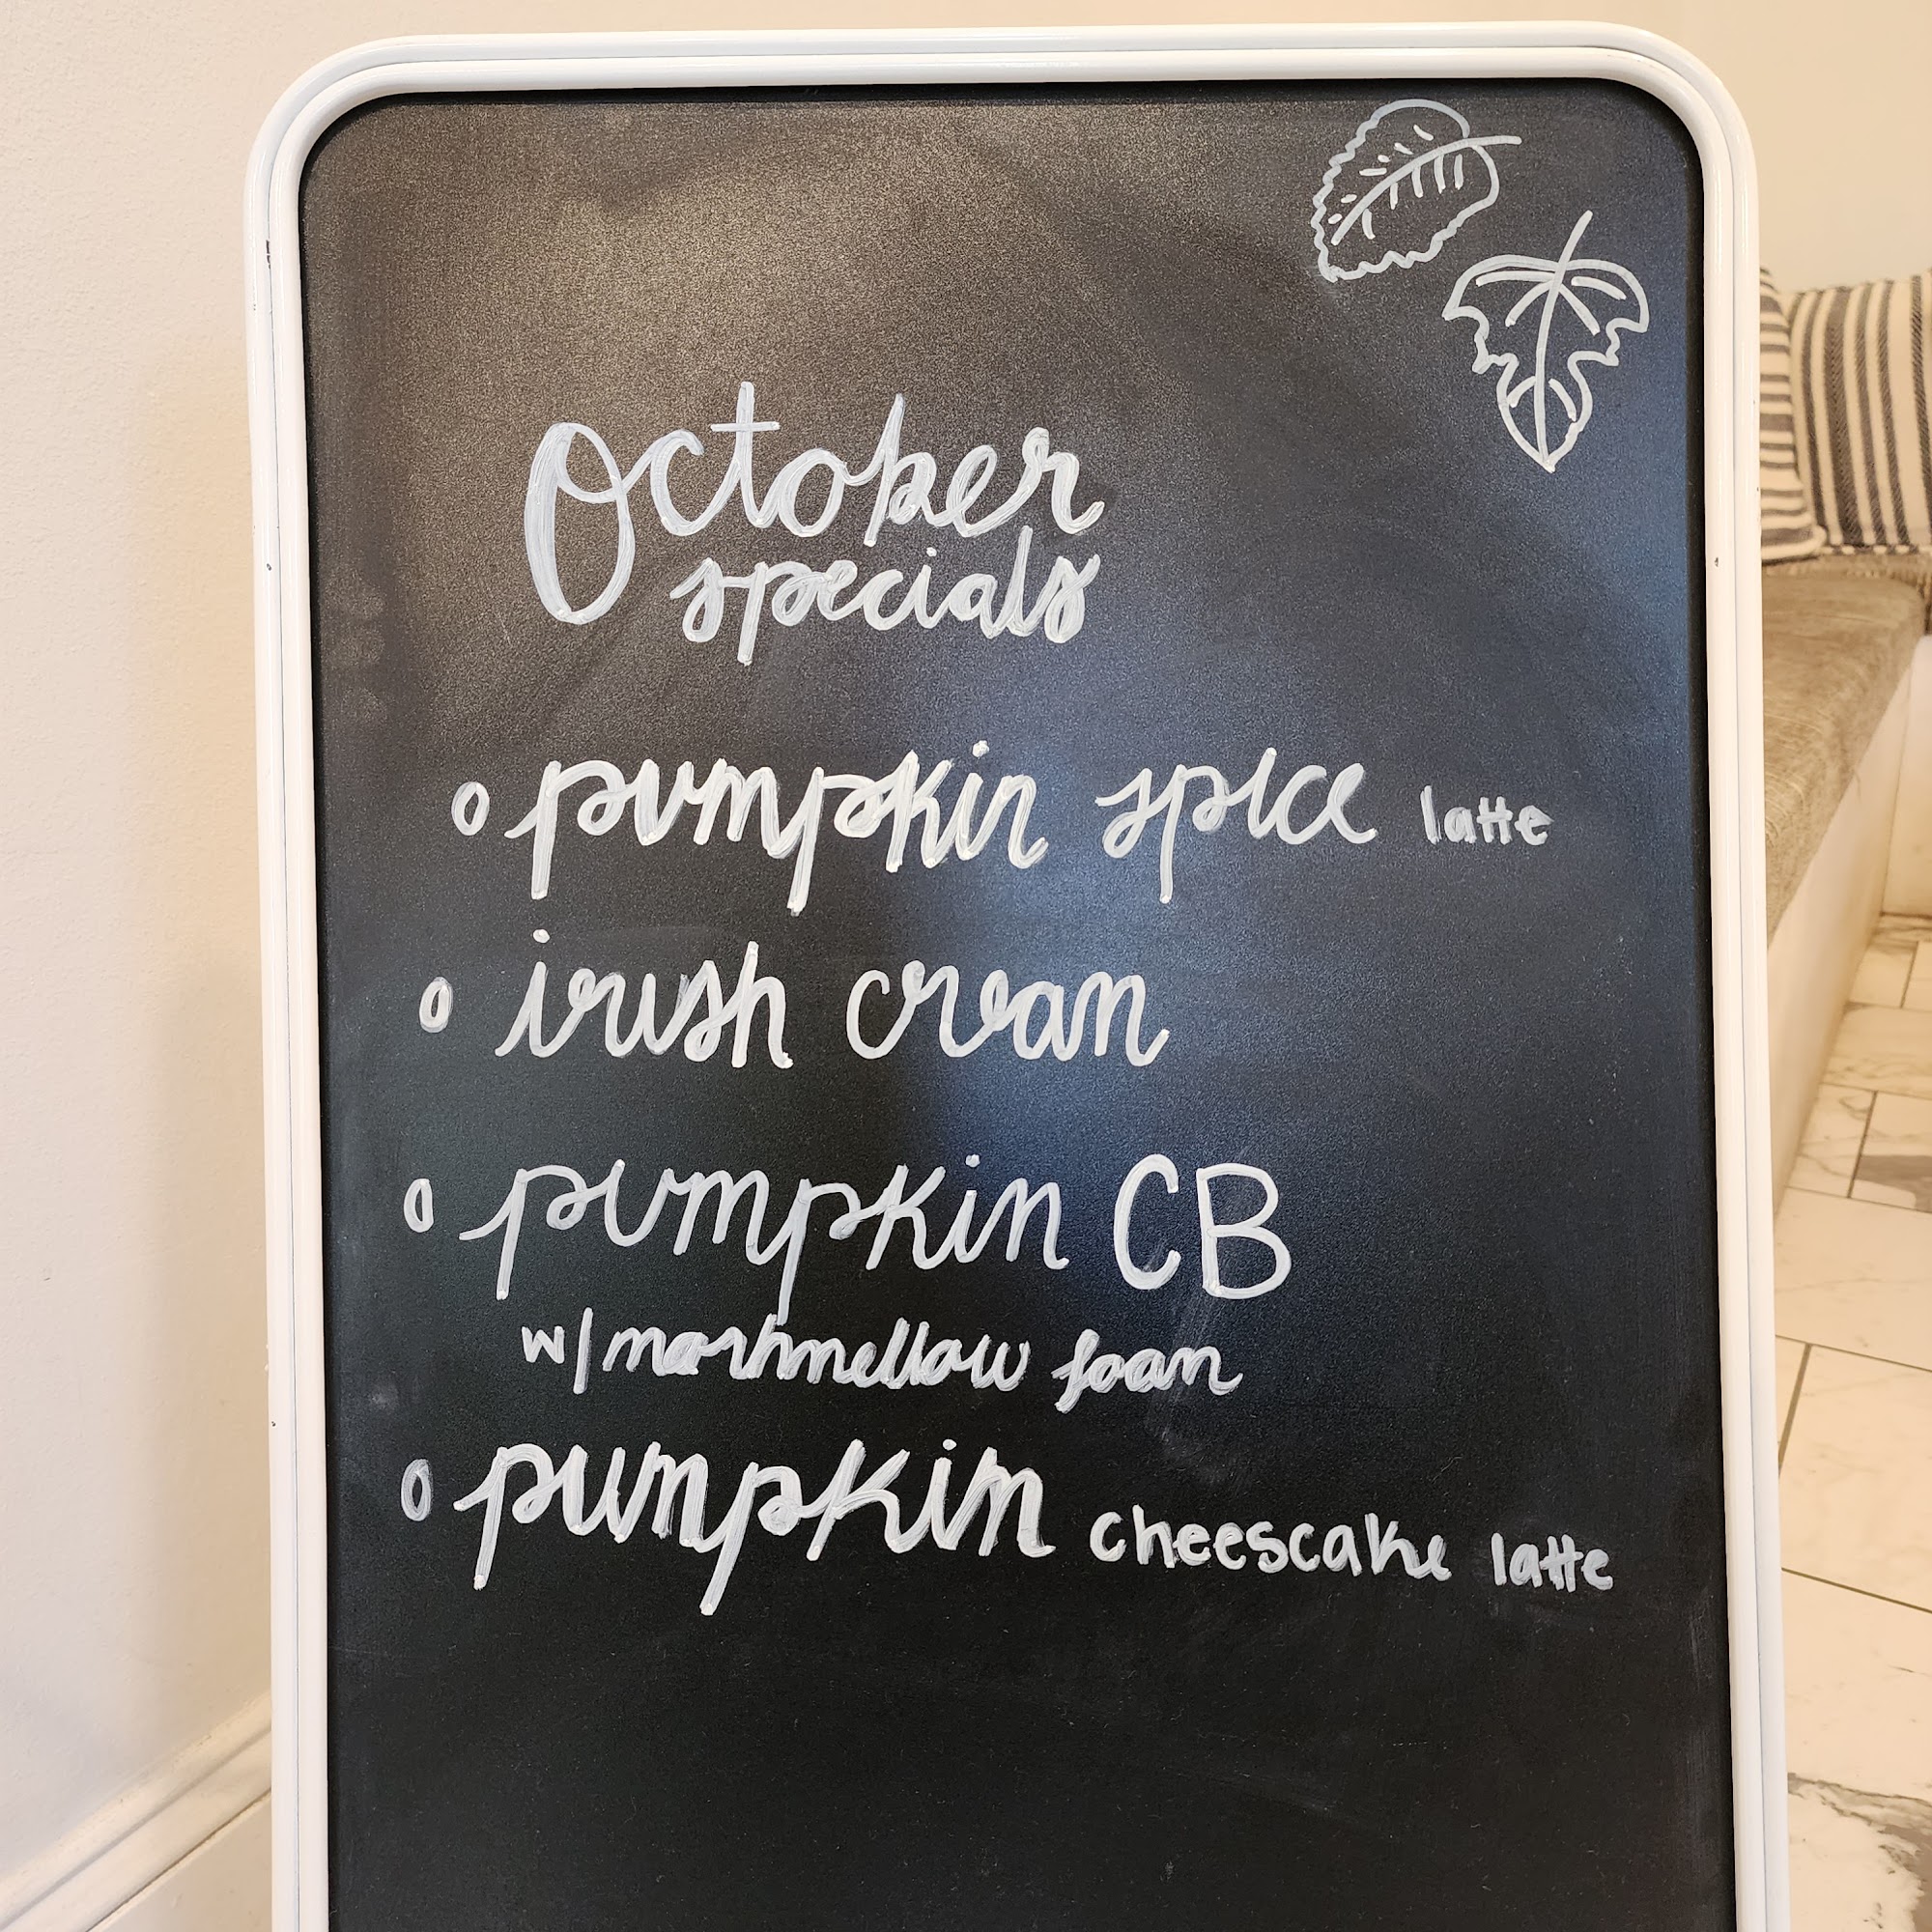 October
specials
pumpkin spice latte
irish cream
pumpkin CB
w/marshmellow foam
pumpkin cheesecake latte